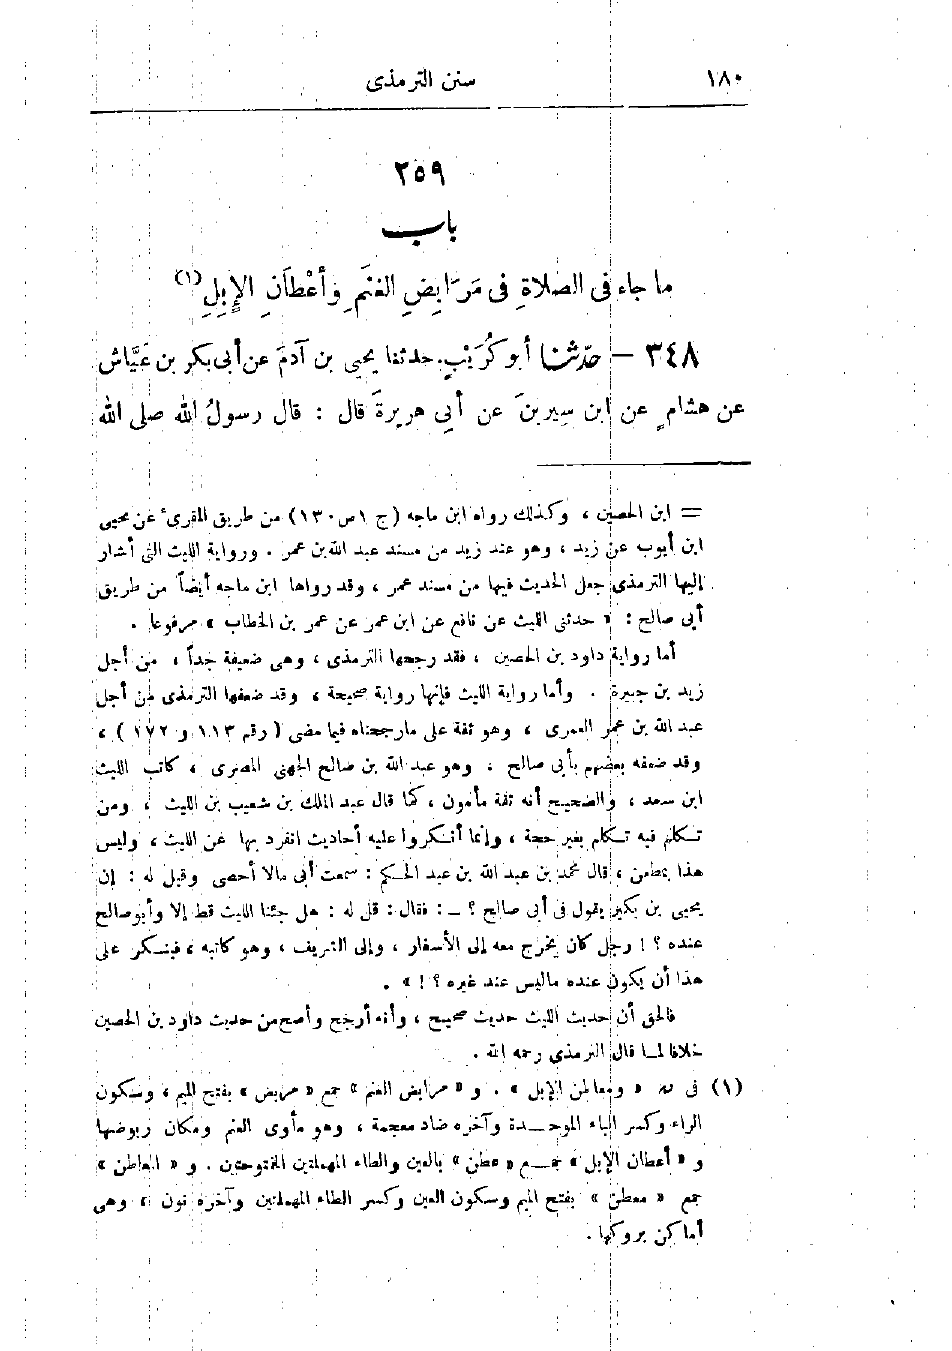 ١٨٠ سنن الترمذى
٢٥٩
باب
ما جاء فى الصلاةِ فى مَرَابِضِ الغنَمِ وأعْطاَنِ الإِبِلِ (١)
٣٤٨ – حدّثنا أبو كُرَيْبٍ. حدثنا يحيى بن آدمَ عن أبى بكر بن عَيَّاش
عن هشامٍ عن ابن سِيرينَ عن أبِى هريرةَ قال : قال رسولُ الله صلى الله
= ابن الحصين ، وكذلك رواه ابن ماجه (ج ١ ص ١٣٠) من طريق المقرىء عن يحيى
ابن أيوب عن زيد ، وهو عند زيد من مسند عبد الله بن عمر . ورواية الليث التى أشار
إليها الترمذى جعل الحديث فيها من مسند عمر ، وقد رواها ابن ماجه أيضاً من طريق
أبى صالح : « حدثنى الليث عن نافع عن ابن عمر عن عمر بن الخطاب » مرفوعا .
أما رواية داود بن الحصين ، فقد رجحها الترمذى ، وهى ضعيفة جداً ، من أجل
زيد بن جبيرة . وأما رواية الليث فإنها رواية صحيحة ، وقد ضعفها الترمذى من أجل
عبد الله بن عمر العمرى ، وهو ثقة على مارجحناه فيما مضى ( رقم ١١٣ و ١٧٢ ) ،
وقد ضعفه بعضهم بأبى صالح ، وهو عبد الله بن صالح الجهنى المصرى ، كاتب الليث
ابن سعد ، والصحيح أنه ثقة مأمون ، كما قال عبد الملك بن شعيب بن الليث ، ومن
تكلم فيه تكلم بغير حجة ، وإنما أنكروا عليه أحاديث انفرد بها عن الليث ، وليس
هذا بمطعن ، قال محمد بن عبد الله بن عبد الحكم : سمعت أبى مالا أحصى وقيل له : إن
يحيى بن بكير يقول فى أبى صالح ؟ ـ : فقال : قل له : هل جئنا الليث قط إلا وأبو صالح
عنده ؟ ! رجل كان يخرج معه إلى الأسفار ، وإلى الريف ، وهو كاتبه ، فينكر على
هذا أن يكون عنده ماليس عند غيره ؟ ! » .
فالحق أن حديث الليث حديث صحيح ، وأنه أرجح وأصح من حديث داود بن الحصين
خلافا لما قال الترمذى رحمه الله .
(١) فى « ومعاطن الإبل » . و « مرابض الغنم » جمع « مربض » بفتح الميم ، وسكون
الراء وكسر الباء الموحدة وآخره ضاد معجمة ، وهو مأوى الغنم ومكان ربوضها
و « أعطان الإبل » جمع « عطن » بالعين والطاء المهملتين المفتوحتين . و « المعاطن »
جمع « معطن » بفتح الميم وسكون العين وكسر الطاء المهملتين وآخره نون ، وهى
أماكن بروكها .